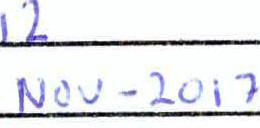 12
Nov-2017